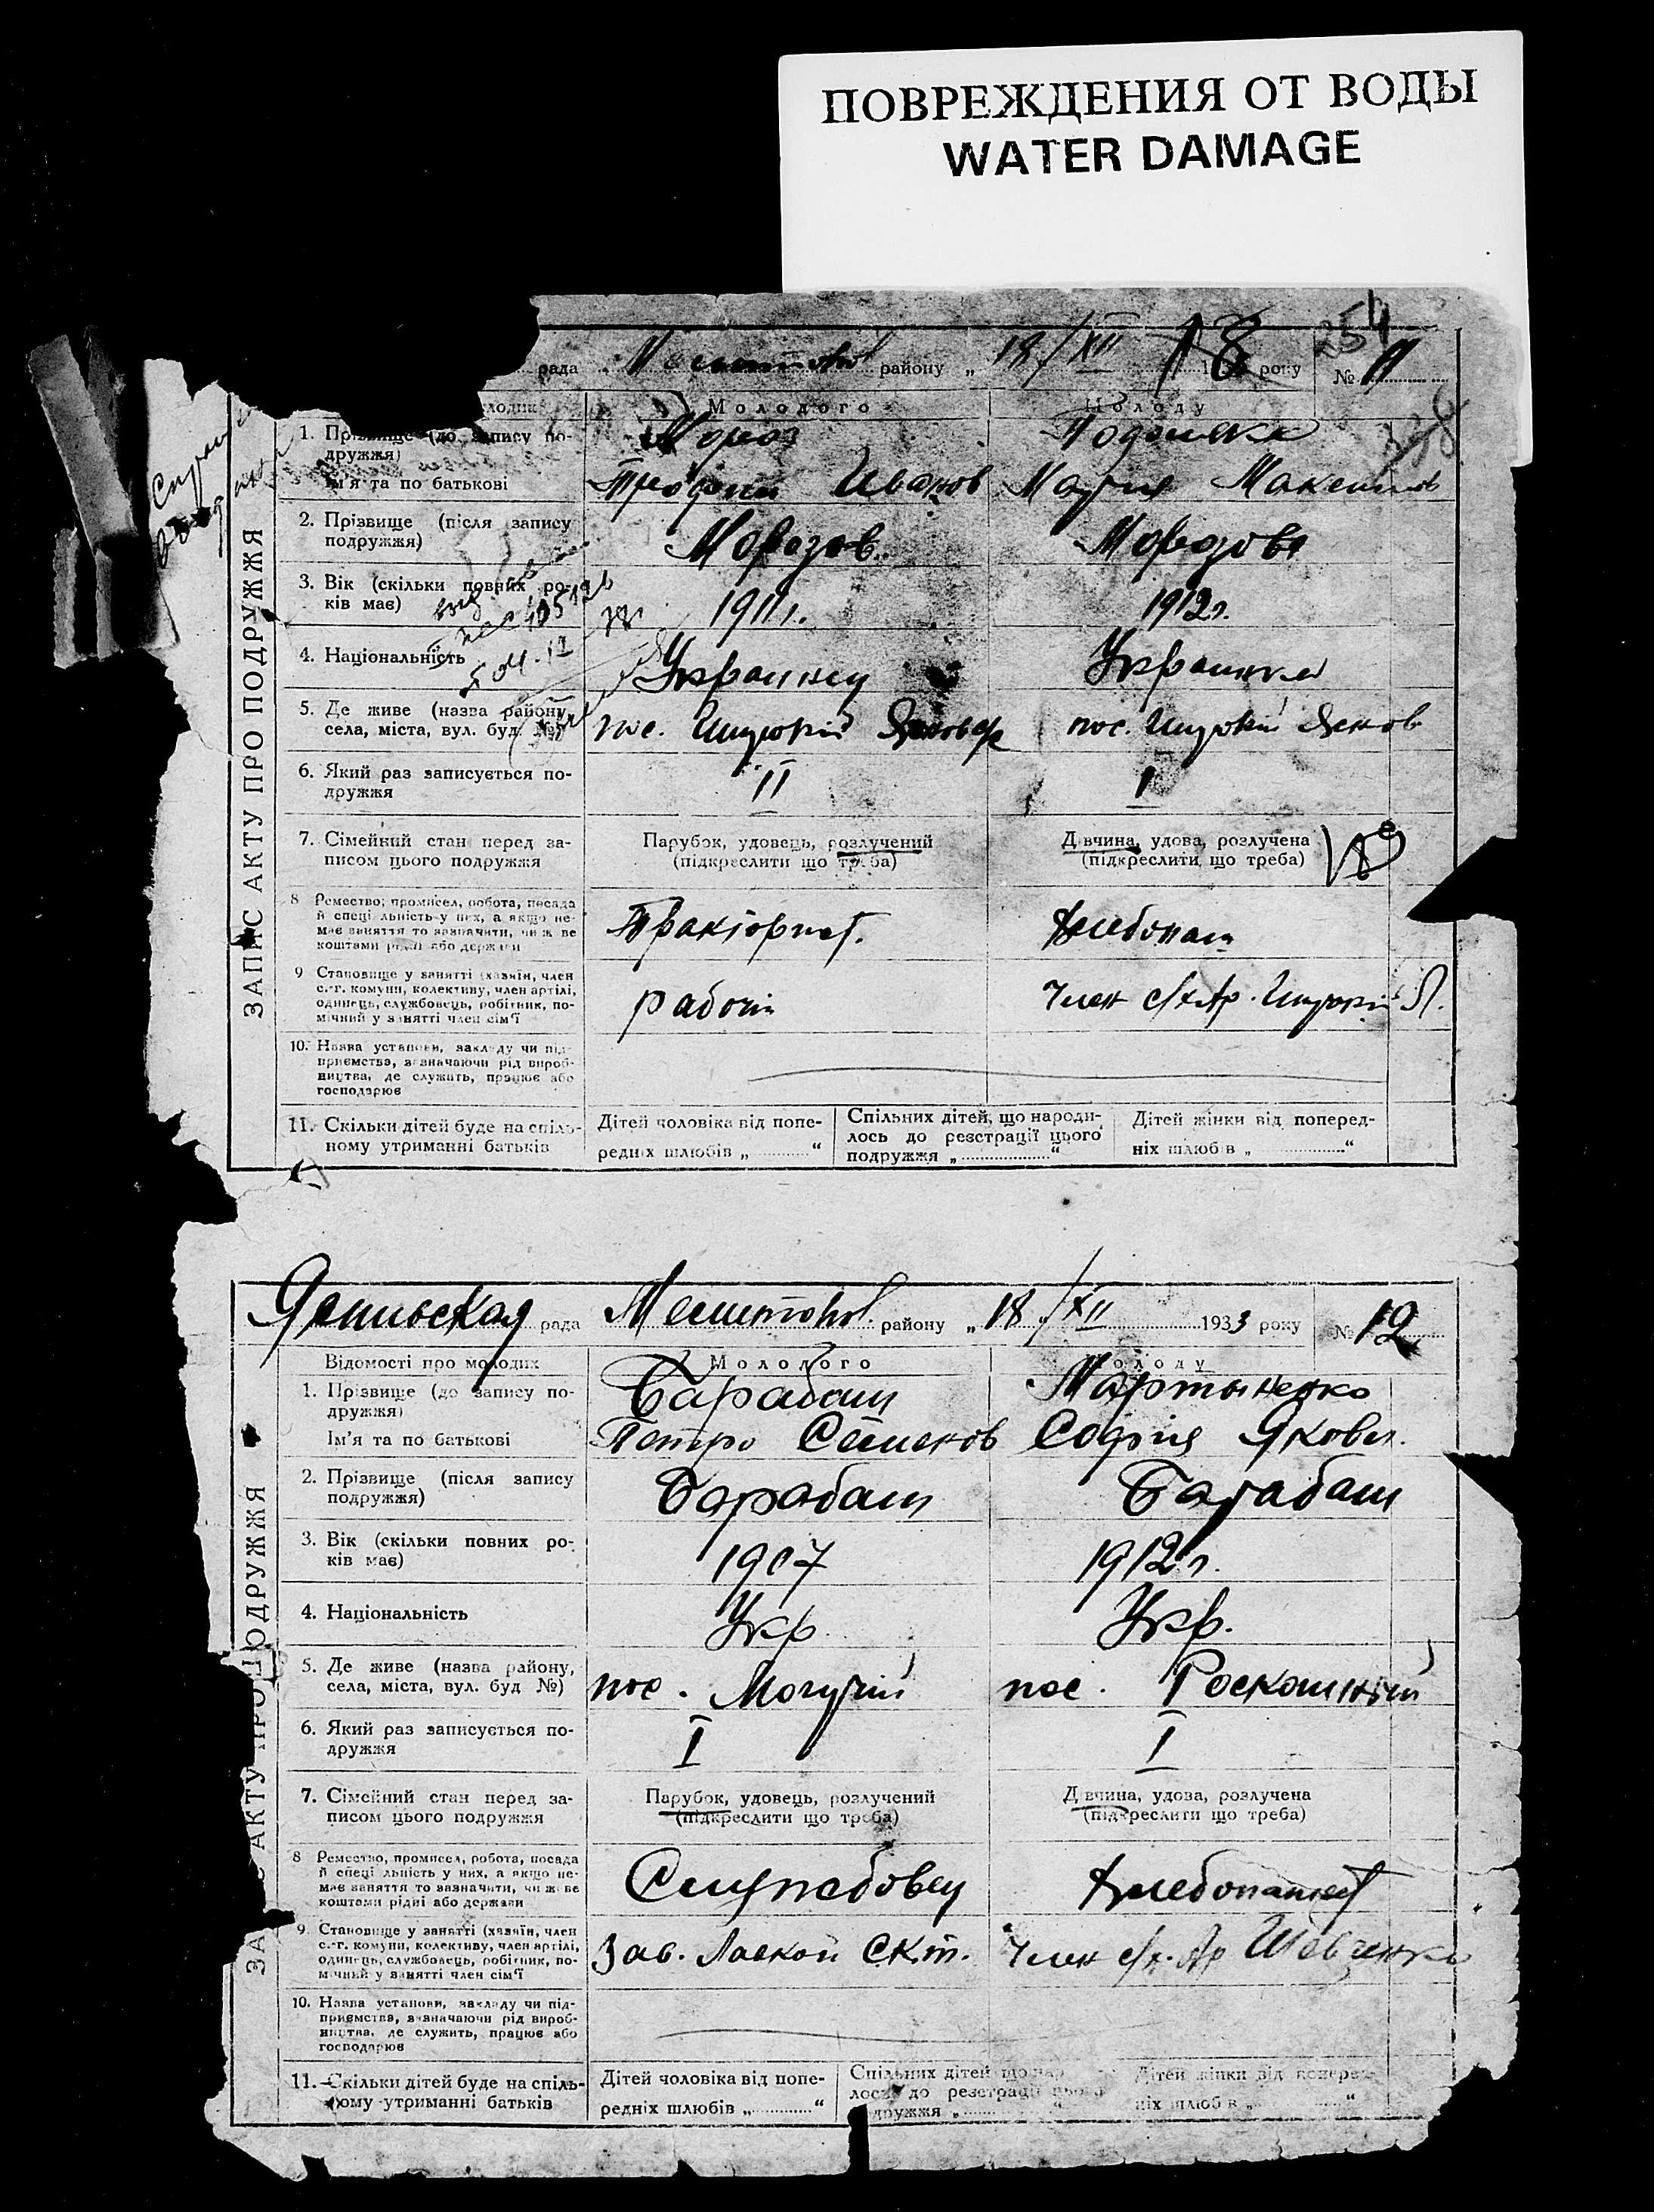 ПОВРЕЖДЕНИЯ ОТ ВОДЫ
WATER DAMAGE
254
рада районy „ 18/XII року № 11
Молодого Молоду
1. Прізвище (до запису по-
дружжя) Мороз
ім'я та по батькові Иванов Мария Максимов
2. Прізвище (після запису
подружжя) Морозов Морозова
3. Вік (скільки повних ро-
ків має) 1911 г. 1912 г.
4. Національність Украинец Украинка
5. Де живе (назва району,
села, міста, вул. буд. №) пос. пос.
6. Який раз записується по-
дружжя II I
7. Сімейний стан перед за-
писом цього подружжя
Парубок, удовець, розлучений
(підкреслити що треба)
Дівчина, удова, розлучена
(підкреслити що треба)
8 Ремество, промисел, робота, посада
й спеціальність у них, а якщо не-
має заняття то зазначити, чи живе
коштами рідні або держави
Тракторист. Хлебопаш
9 Становище у занятті (хазяїн, член
с.-г. комуни, колективу, член артілі,
одинець, службовець, робітник, по-
мічний у занятті член сім'ї
рабочий Член с/х Ар.
10. Назва установи, закладу чи під-
приємства, зазначаючи рід вироб-
ництва, де служить, працює або
господарює
11. Скільки дітей буде на спіль-
ному утриманні батьків
Дітей чоловіка від попе-
редніх шлюбів „ “
Спільних дітей, що народи-
лось до реєстрації цього
подружжя „ “
Дітей жінки від поперед-
ніх шлюбів „ “
ЗАПИС АКТУ ПРО ПОДРУЖЖЯ
рада району „ 18 “/XII 1933 року № 12
Відомості про молодих Молодого Молоду
1. Прізвище (до запису по-
дружжя) Барабаш Мартыненко
Ім'я та по батькові Петро Семенов София Яковл.
2. Прізвище (після запису
подружжя) Барабаш Барабаш
3. Вік (скільки повних ро-
ків має) 1907 1912 г.
4. Національність Укр Укр.
5. Де живе (назва району,
села, міста, вул. буд №) пос. Могучий пос. Роскошний
6. Який раз записується по-
дружжя I I
7. Сімейний стан перед за-
писом цього подружжя
Парубок, удовець, розлучений
(підкреслити що треба)
Дівчина, удова, розлучена
(підкреслити що треба)
8 Ремество, промисел, робота, посада
й спеціальність у них, а якщо не-
має заняття то зазначити, чи живе
коштами рідні або держави
Службовец Хлебопашец
9. Становище у занятті (хазяїн, член
с.-г. комуни, колективу, член артілі,
одинець, службовець, робітник, по-
мічний у занятті член сім'ї
Зав. Член с/х. Ар Шевченка
10. Назва установи, закладу чи під-
приємства, зазначаючи рід вироб-
ництва, де служить, працює або
господарює
11. Скільки дітей буде на спіль-
ному утриманні батьків
Дітей чоловіка від попе-
редніх шлюбів „ “
Спільних дітей що нар
лось до реєстрації цього
дружжя „ “
Дітей жінки від поперед-
ніх шлюбів „ “
АКТУ ПРО ПОДРУЖЖЯ